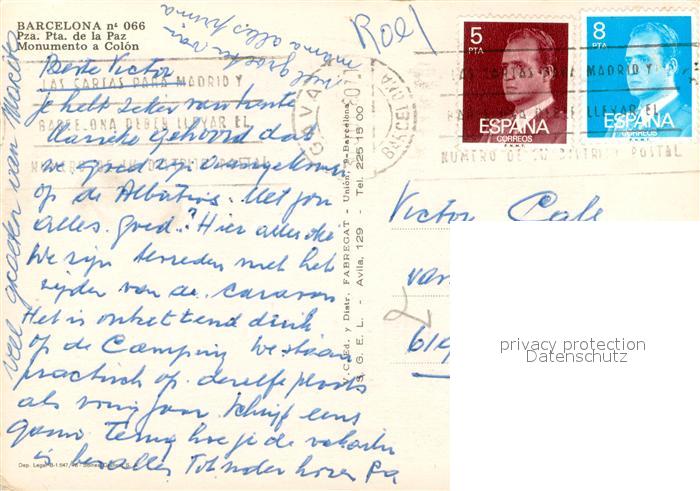 BARCELONA nº 066
Pza. Pta. de la Paz
Monumento a Colón
Beste Victor
Je hebt zeker van tante
Marieke gehoord dat
we goed zijn aangekomen
op de Albatros. Met jou
alles goed? Hier alles oké
We zijn tevreden met het
rijden van de caravan
Het is ontzettend druk
op de Camping We staan
practisch op dezelfde plaats
als vorig jaar Schrijf eens
gauw terug hoe je de vakantie
is bevallen Tot nader horen Pa
veel groeten van Marieke
groeten van
mama alles prima
Roel
Dep. Legal B-1.547/
V. C. Ed. y Distr. FABREGAT - Unión, 8 - Barcelona
S. G. E. L. - Avila, 129 - Tel. 225 18 00
LAS CARTAS PARA MADRID Y
BARCELONA DEBEN LLEVAR EL
NUMERO DE SU DISTRITO POSTAL
GAVA
BARCELONA
5
PTA
ESPAÑA
CORREOS
F.N.M.T.
8
PTA
ESPAÑA
CORREOS
F.N.M.T.
LAS CARTAS PARA MADRID Y
BARCELONA DEBEN LLEVAR EL
NUMERO DE SU DISTRITO POSTAL
Victor
van
privacy protection
Datenschutz